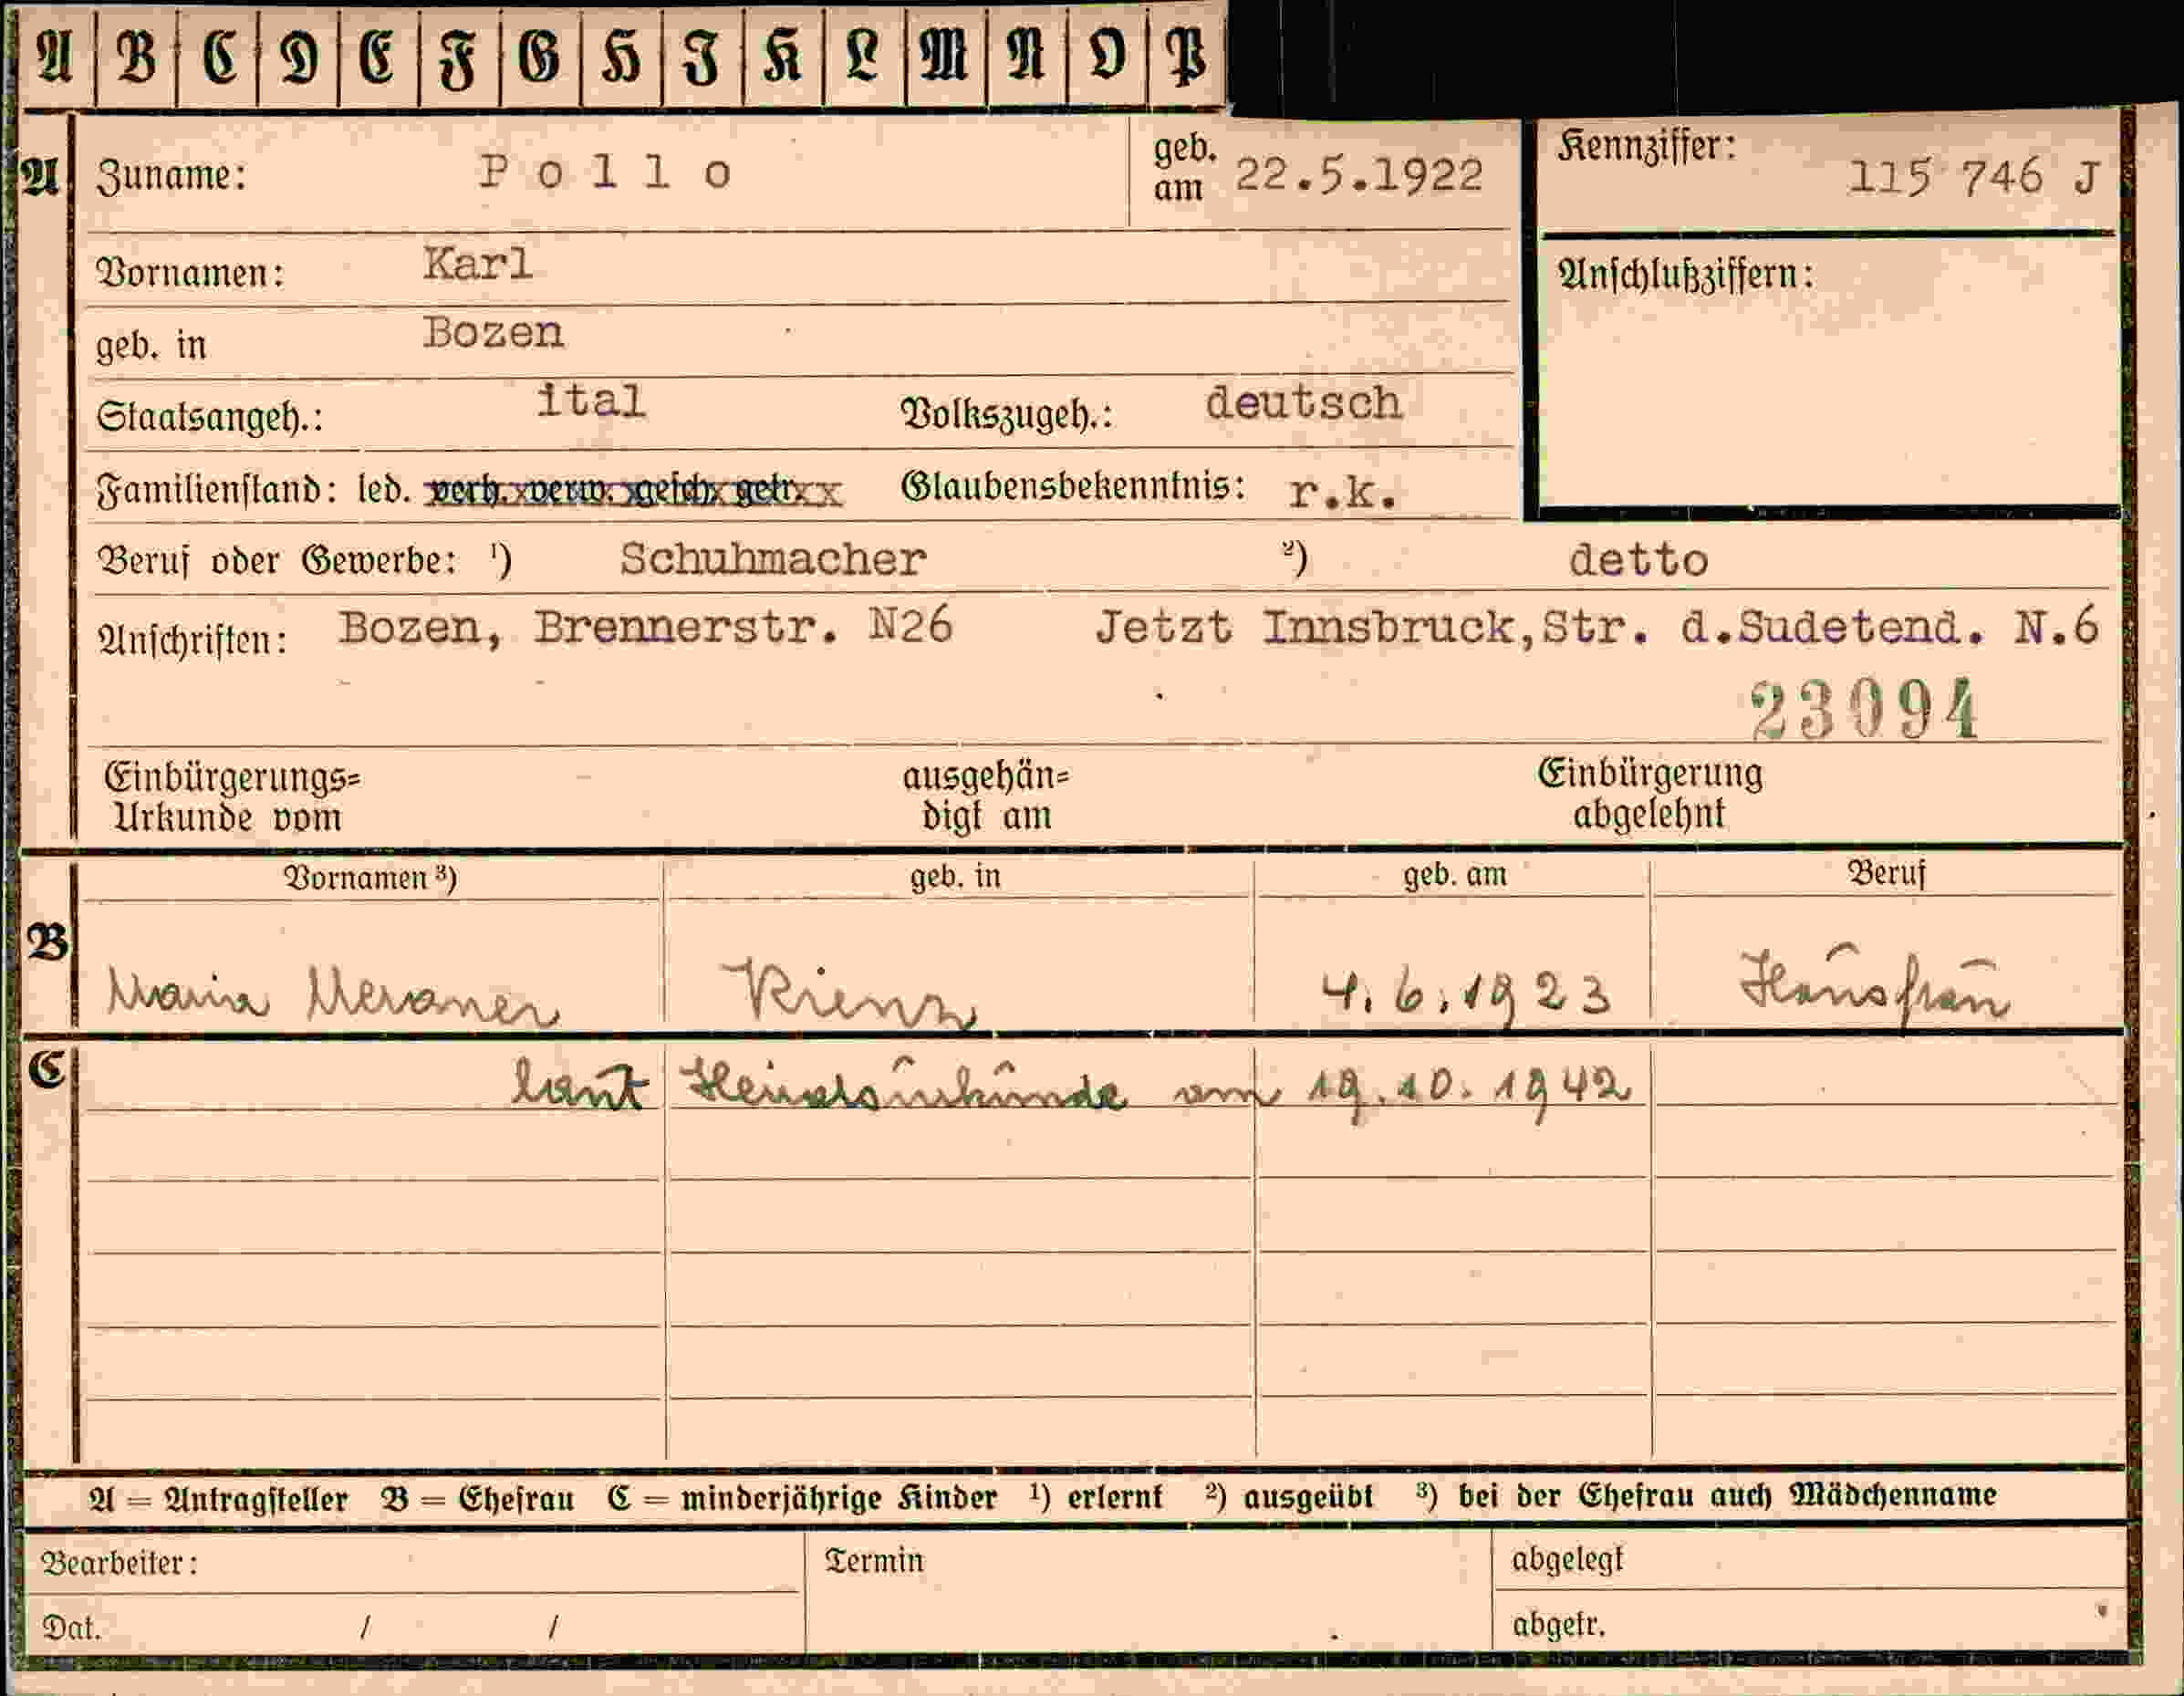 A B C D E F G H I K L M N O P
A Zuname: Pollo geb. am 22.5.1922 Kennziffer: 115 746 J
Vornamen: Karl Anschlußziffern:
geb. in Bozen
Staatsangeh.: ital Volkszugeh.: deutsch
Familienstand: led. verh. verw. gesch. getr. Glaubensbekenntnis: r.k.
Beruf oder Gewerbe: ¹) Schuhmacher ²) detto
Anschriften: Bozen, Brennerstr. N26 Jetzt Innsbruck,Str. d.Sudetend. N.6
23094
Einbürgerungs= ausgehän= Einbürgerung
Urkunde vom digt am abgelehnt
Vornamen ³) geb. in geb. am Beruf
B Maria Meraner Rienz 4.6.1923 Hausfrau
C laut Heiratsurkunde am 19.10.1942
A = Antragsteller B = Ehefrau C = minderjährige Kinder ¹) erlernt ²) ausgeübt ³) bei der Ehefrau auch Mädchenname
Bearbeiter: Termin abgelegt
Dat. / / abgetr.